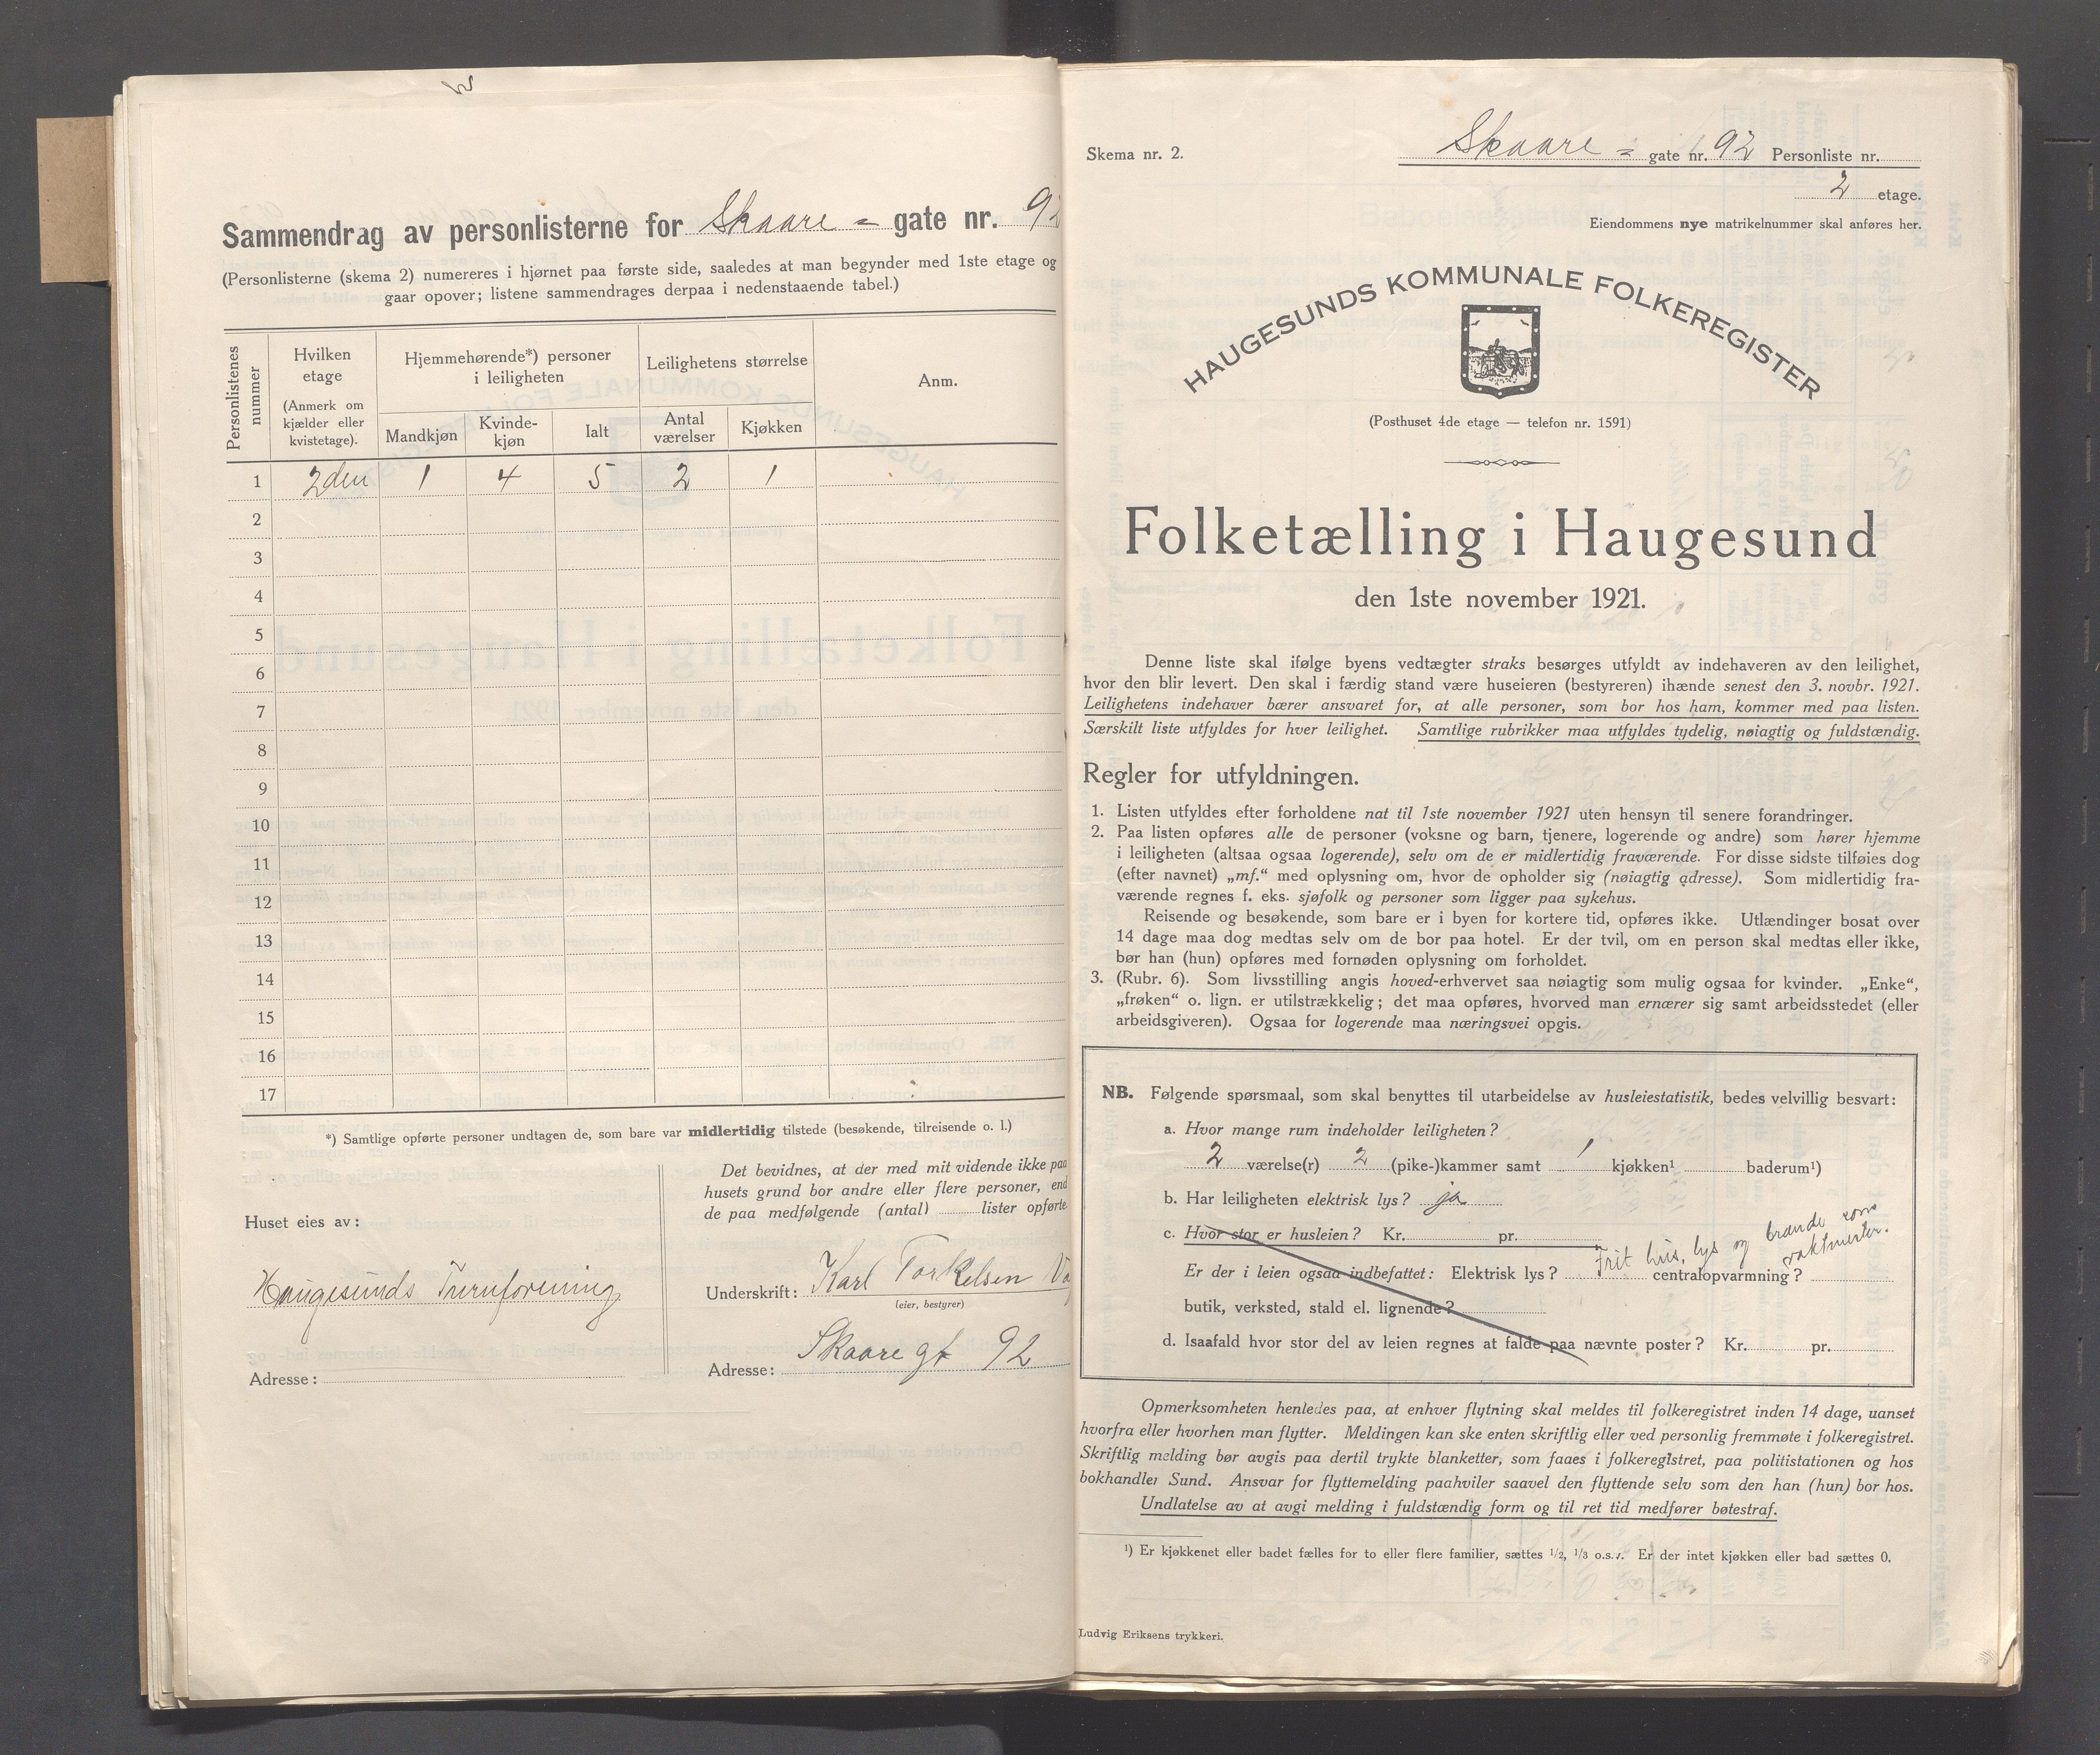 Sammendrag av personlisterne for Skaare - gate nr. 92
(Personlisterne (skema 2) numereres i hjørnet paa første side, saaledes at man begynder med 1ste etage og
gaar opover; listene sammendrages derpaa i nedenstaaende tabel.)
Personlistenes nummer
Hvilken etage
(Anmerk om kjælder eller kvistetage).
Hjemmehørende*) personer i leiligheten
Mandkjøn
Kvinde-kjøn
Ialt
Leilighetens størrelse
Antal værelser
Kjøkken
Anm.
1 2den 1 4 5 2 1
2
3
4
5
6
7
8
9
10
11
12
13
14
15
16
17
*) Samtlige opførte personer undtagen de, som bare var midlertidig tilstede (besøkende, tilreisende o. l.)
Huset eies av:
Haugesunds Turnforening
Adresse:
Det bevidnes, at der med mit vidende ikke paa
husets grund bor andre eller flere personer, end
de paa medfølgende (antal) lister opførte
Underskrift: Karl Torkelsen
(eier, bestyrer)
Adresse: Skaare gt 92
Skema nr. 2.
Skaare - gate nr. 92 Personliste nr.
2 etage.
Eiendommens nye matrikelnummer skal anføres her.
HAUGESUNDS KOMMUNALE FOLKEREGISTER
(Posthuset 4de etage — telefon nr. 1591)
Folketælling i Haugesund
den 1ste november 1921.
Denne liste skal ifølge byens vedtægter straks besørges utfyldt av indehaveren av den leilighet,
hvor den blir levert. Den skal i færdig stand være huseieren (bestyreren) ihænde senest den 3. novbr. 1921.
Leilighetens indehaver bærer ansvaret for, at alle personer, som bor hos ham, kommer med paa listen.
Særskilt liste utfyldes for hver leilighet. Samtlige rubrikker maa utfyldes tydelig, nøiagtig og fuldstændig.
Regler for utfyldningen.
1. Listen utfyldes efter forholdene nat til 1ste november 1921 uten hensyn til senere forandringer.
2. Paa listen opføres alle de personer (voksne og barn, tjenere, logerende og andre) som hører hjemme
i leiligheten (altsaa ogsaa logerende), selv om de er midlertidig fraværende. For disse sidste tilføies dog
(efter navnet) „mf.“ med oplysning om, hvor de opholder sig (nøiagtig adresse). Som midlertidig fra-
værende regnes f. eks. sjøfolk og personer som ligger paa sykehus.
Reisende og besøkende, som bare er i byen for kortere tid, opføres ikke. Utlændinger bosat over
14 dage maa dog medtas selv om de bor paa hotel. Er der tvil, om en person skal medtas eller ikke,
bør han (hun) opføres med fornøden oplysning om forholdet.
3. (Rubr. 6). Som livsstilling angis hoved-erhvervet saa nøiagtig som mulig ogsaa for kvinder. „Enke“,
„frøken“ o. lign. er utilstrækkelig; det maa opføres, hvorved man ernærer sig samt arbeidsstedet (eller
arbeidsgiveren). Ogsaa for logerende maa næringsvei opgis.
NB. Følgende spørsmaal, som skal benyttes til utarbeidelse av husleiestatistik, bedes velvillig besvart:
a. Hvor mange rum indeholder leiligheten?
2 værelse(r) 2 (pike-)kammer samt 1 kjøkken¹ baderum¹)
b. Har leiligheten elektrisk lys? ja
c. Hvor stor er husleien? Kr. pr.
Frit hus, lys og brande som vaktmester.
Er der i leien ogsaa indbefattet: Elektrisk lys? centralopvarmning?
butik, verksted, stald el. lignende?
d. Isaafald hvor stor del av leien regnes at falde paa nævnte poster? Kr. pr.
Opmerksomheten henledes paa, at enhver flytning skal meldes til folkeregistret inden 14 dage, uanset
hvorfra eller hvorhen man flytter. Meldingen kan ske enten skriftlig eller ved personlig fremmøte i folkeregistret.
Skriftlig melding bør avgis paa dertil trykte blanketter, som faaes i folkeregistret, paa politistationen og hos
bokhandler Sund. Ansvar for flyttemelding paahviler saavel den flyttende selv som den han (hun) bor hos.
Undlatelse av at avgi melding i fuldstændig form og til ret tid medfører bøtestraf.
¹) Er kjøkkenet eller badet fælles for to eller flere familier, sættes 1/2, 1/3 o.s.v. Er der intet kjøkken eller bad sættes 0.
Ludvig Eriksens trykkeri.